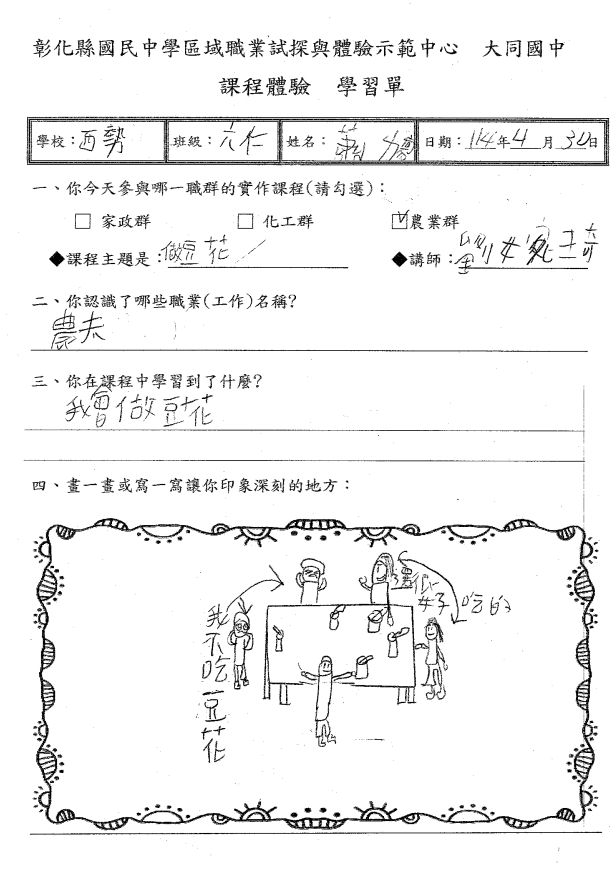 彰化縣國民中學區域職業試探與體驗示範中心　大同國中
課程體驗　學習單
學校：西勢　班級：六仁　姓名：　日期：114年4月30日
一、你今天參與哪一職群的實作課程(請勾選)：
□ 家政群　□ 化工群　☑農業群
◆課程主題是：做豆花　◆講師：
二、你認識了哪些職業(工作)名稱?
農夫
三、你在課程中學習到了什麼?
我會做豆花
四、畫一畫或寫一寫讓你印象深刻的地方：
我不吃豆花
很好吃的